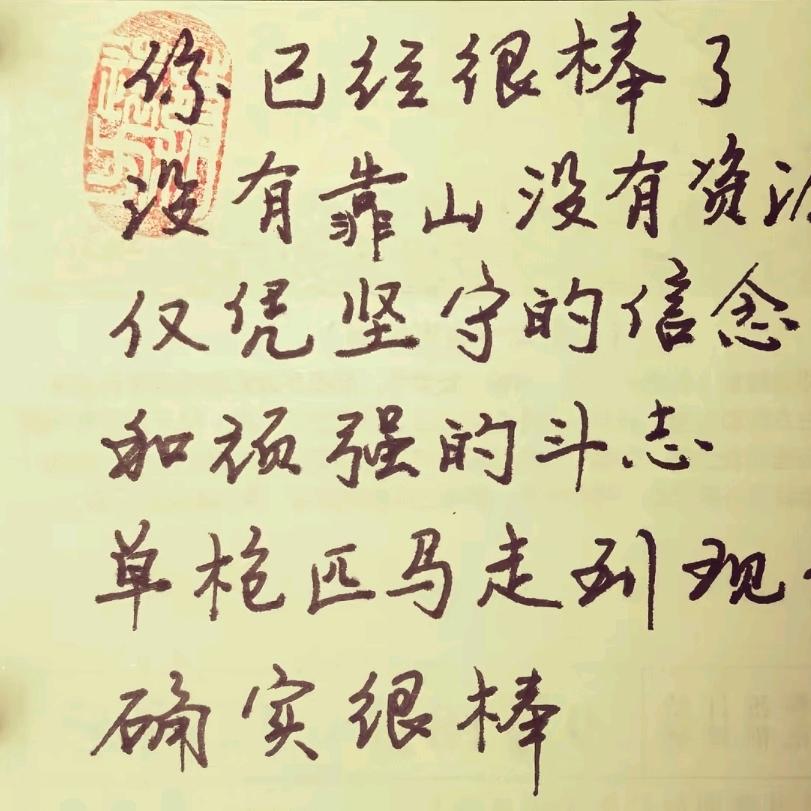 你已经很棒了
没有靠山没有资源
仅凭坚守的信念
和顽强的斗志
单枪匹马走到现
确实很棒